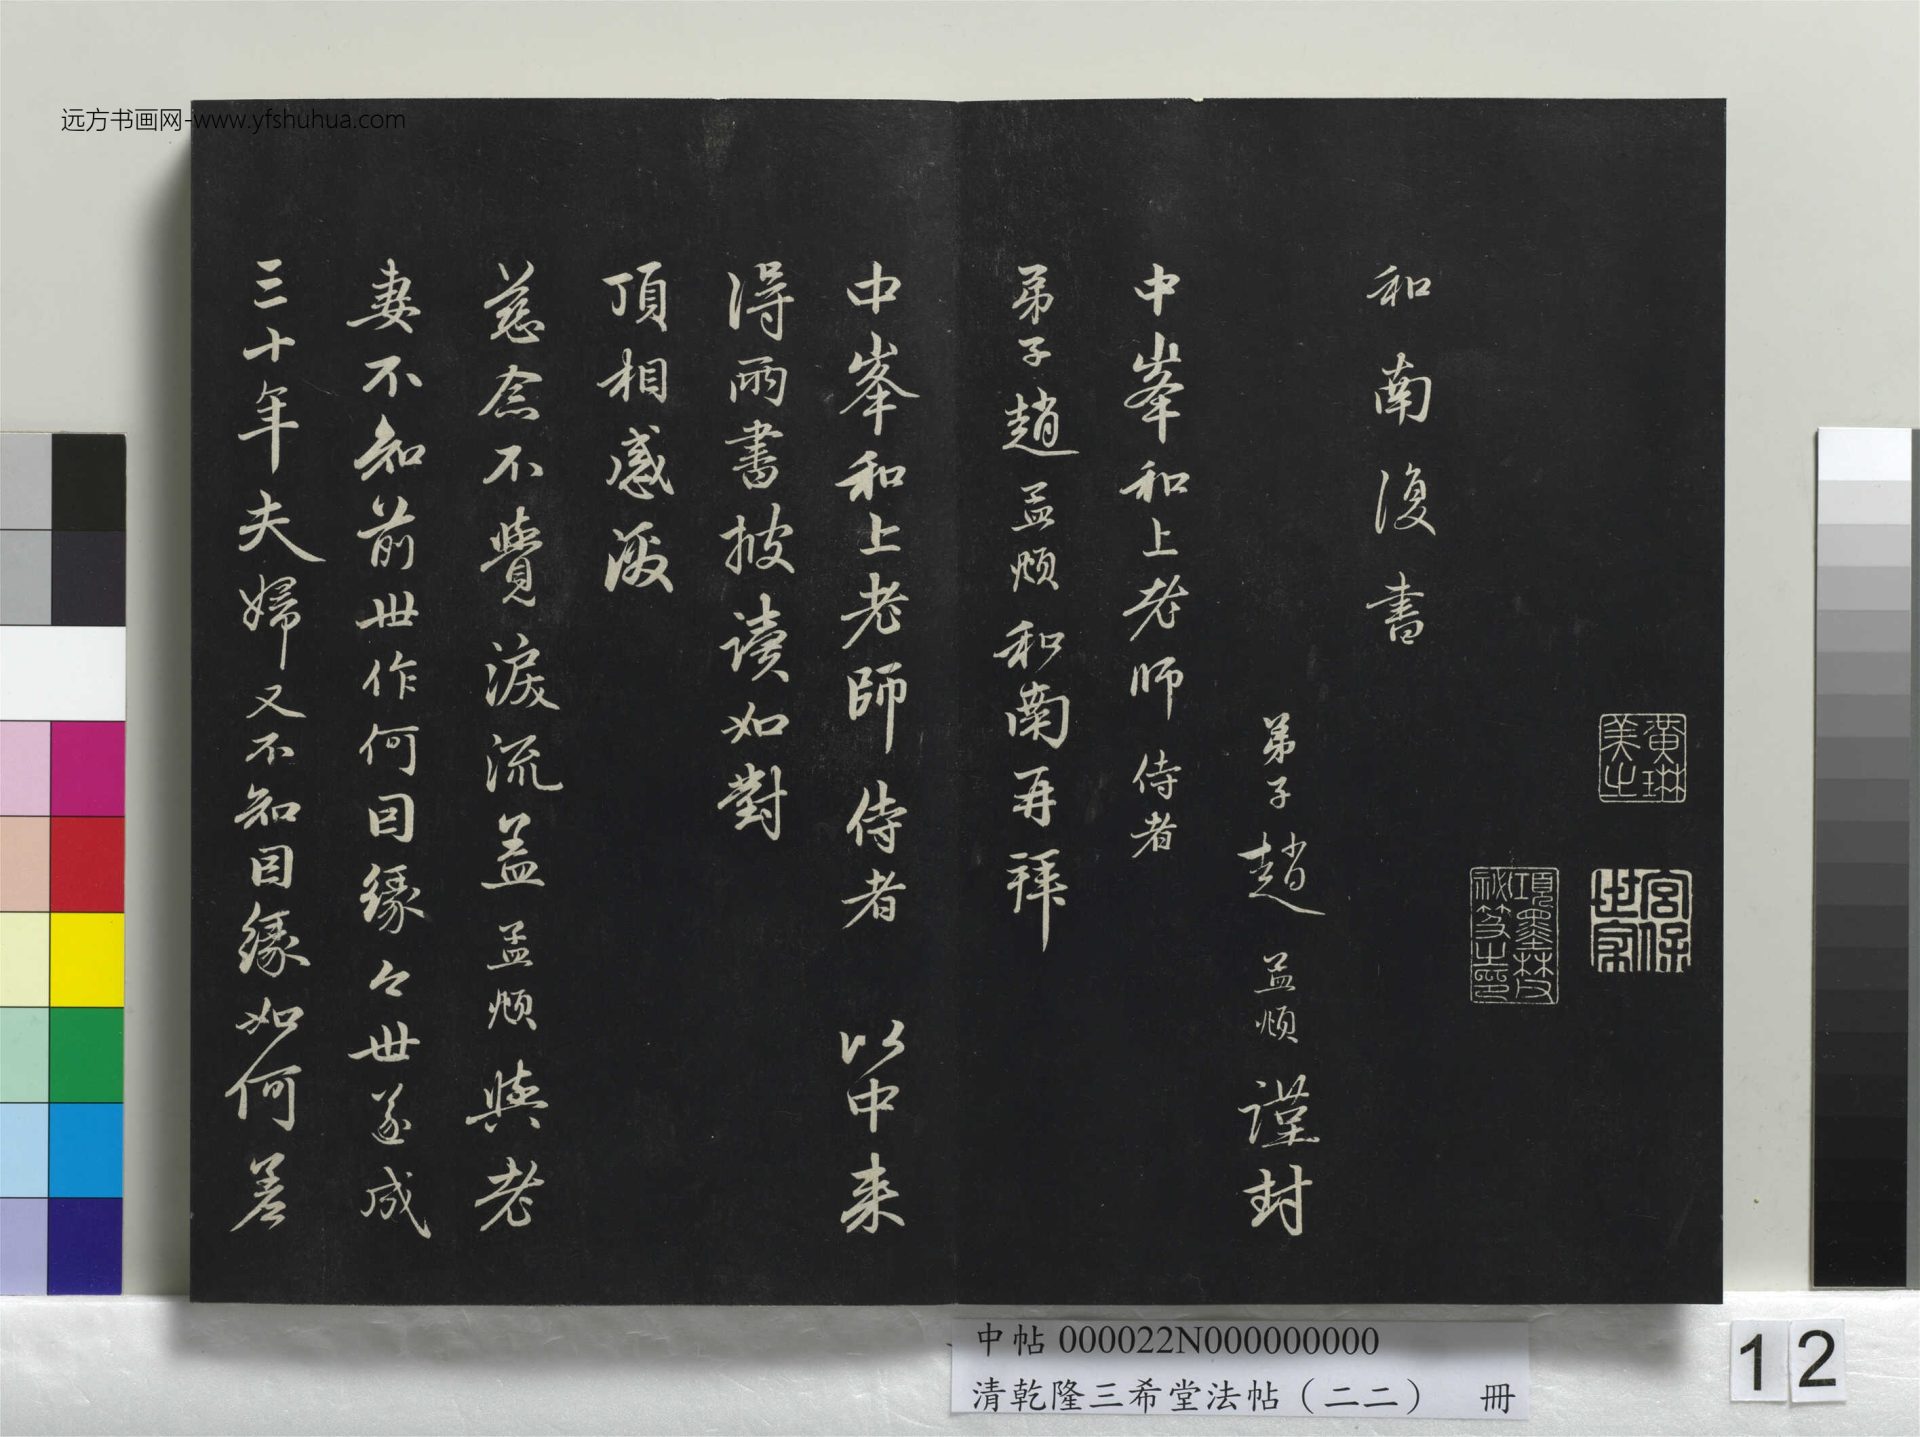 远方书画网-www.yfshuhua.com
黄琳美之
宮保世家
項墨林父祕笈之印
和南復書
弟子趙孟頫謹封
中峯和上老师侍者
弟子趙孟頫和南再拜
中峯和上老師侍者 以中来
得雨書披讀如對
頂相感激
慈念不覺淚流盖孟頫與老
妻不知前世作何因緣今世遂成
三十年夫婦又不知因緣如何差
中帖 000022N000000000
清乾隆三希堂法帖（二二） 冊
12